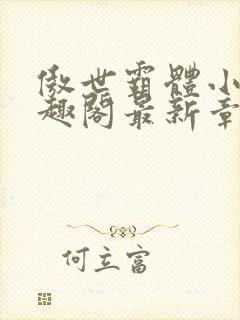 傲世霸體小
趣閣最新章
何立富